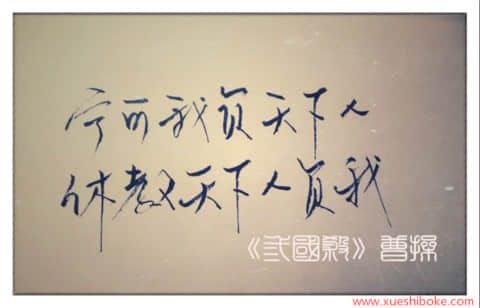 宁可我负天下人
休教天下人负我
《弍國殺》曹操
www.xueshiboke.com